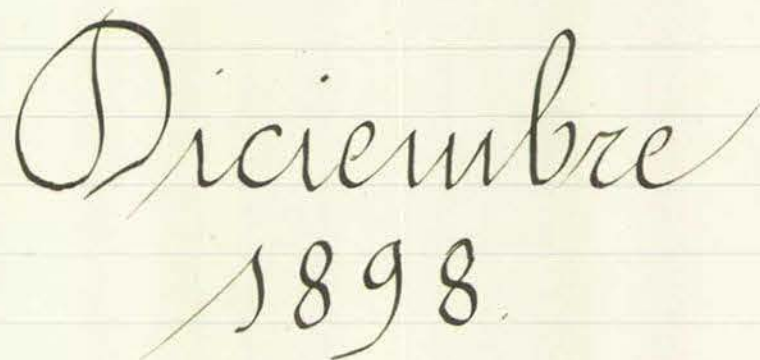 Diciembre
1898.